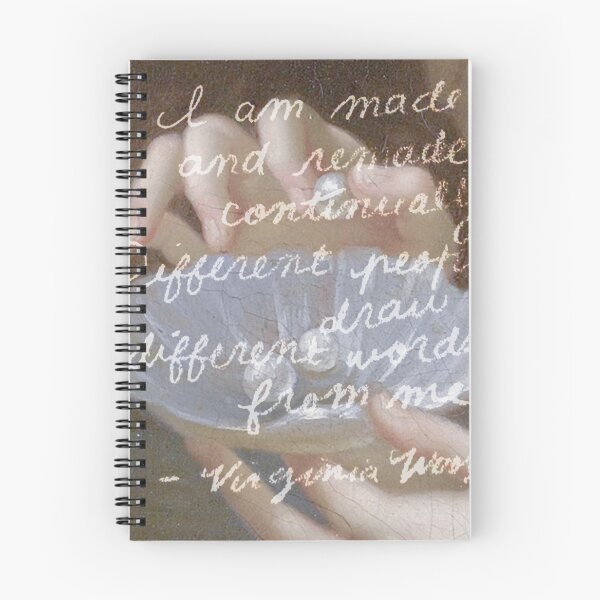 I am made
and remade
continually
different people
draw
different words
from me
- Virginia Woolf